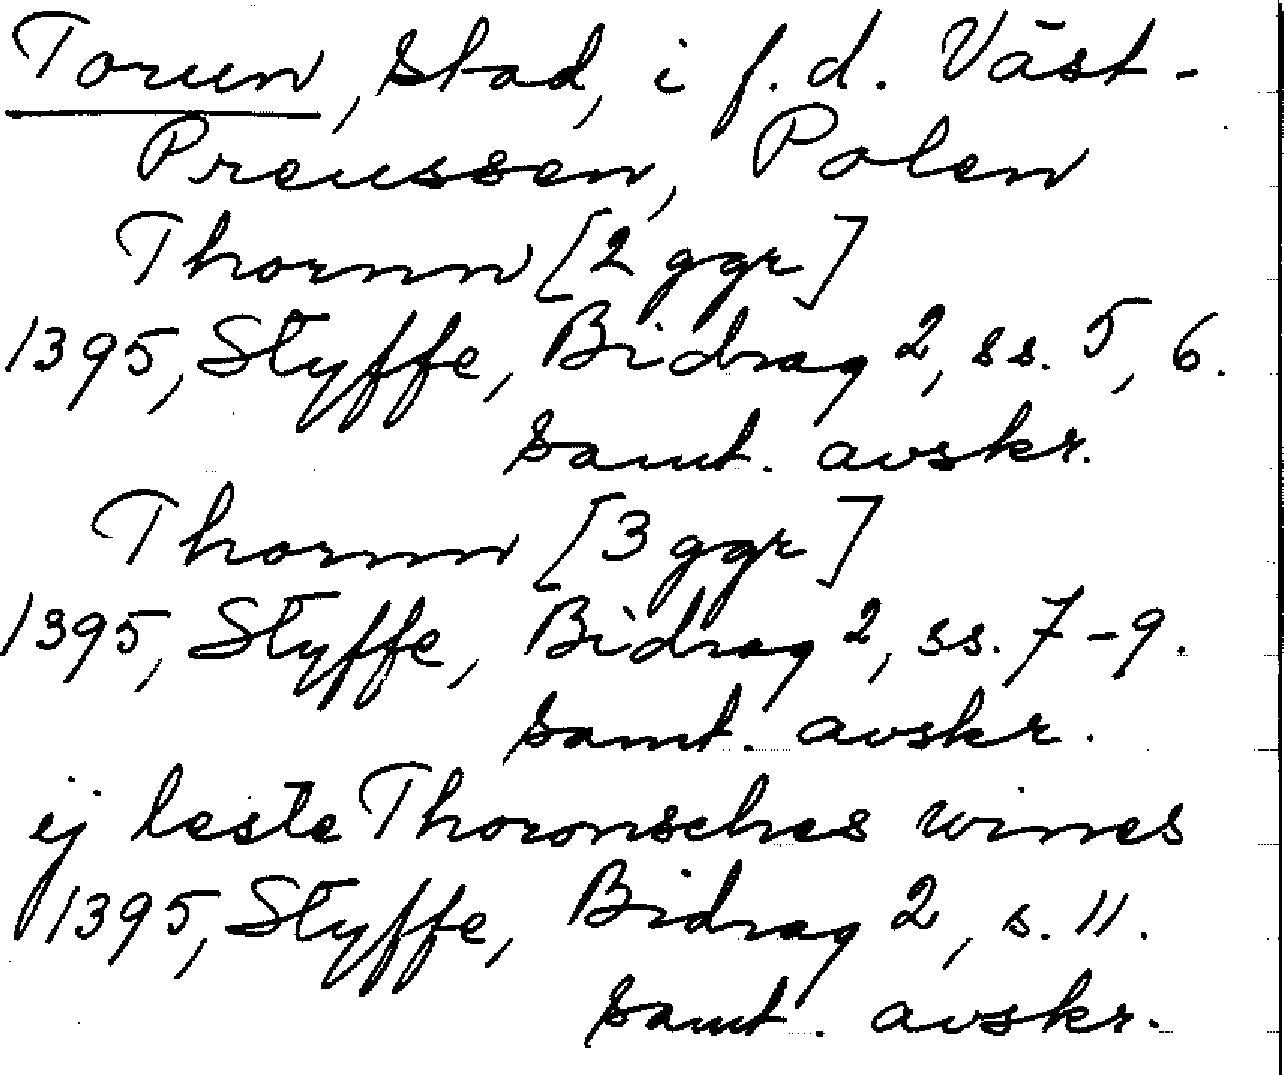 Torun, stad, i f.d. Väst-
Preussen, Polen
Thornn [2 ggr]
1395, Styffe, Bidrag 2, ss. 5, 6.
samt. avskr.
Thornn [3 ggr]
1395, Styffe, Bidrag 2, ss. 7-9.
samt. avskr.
ej leste Thoronsches wines
1395, Styffe, Bidrag 2, s. 11.
samt. avskr.